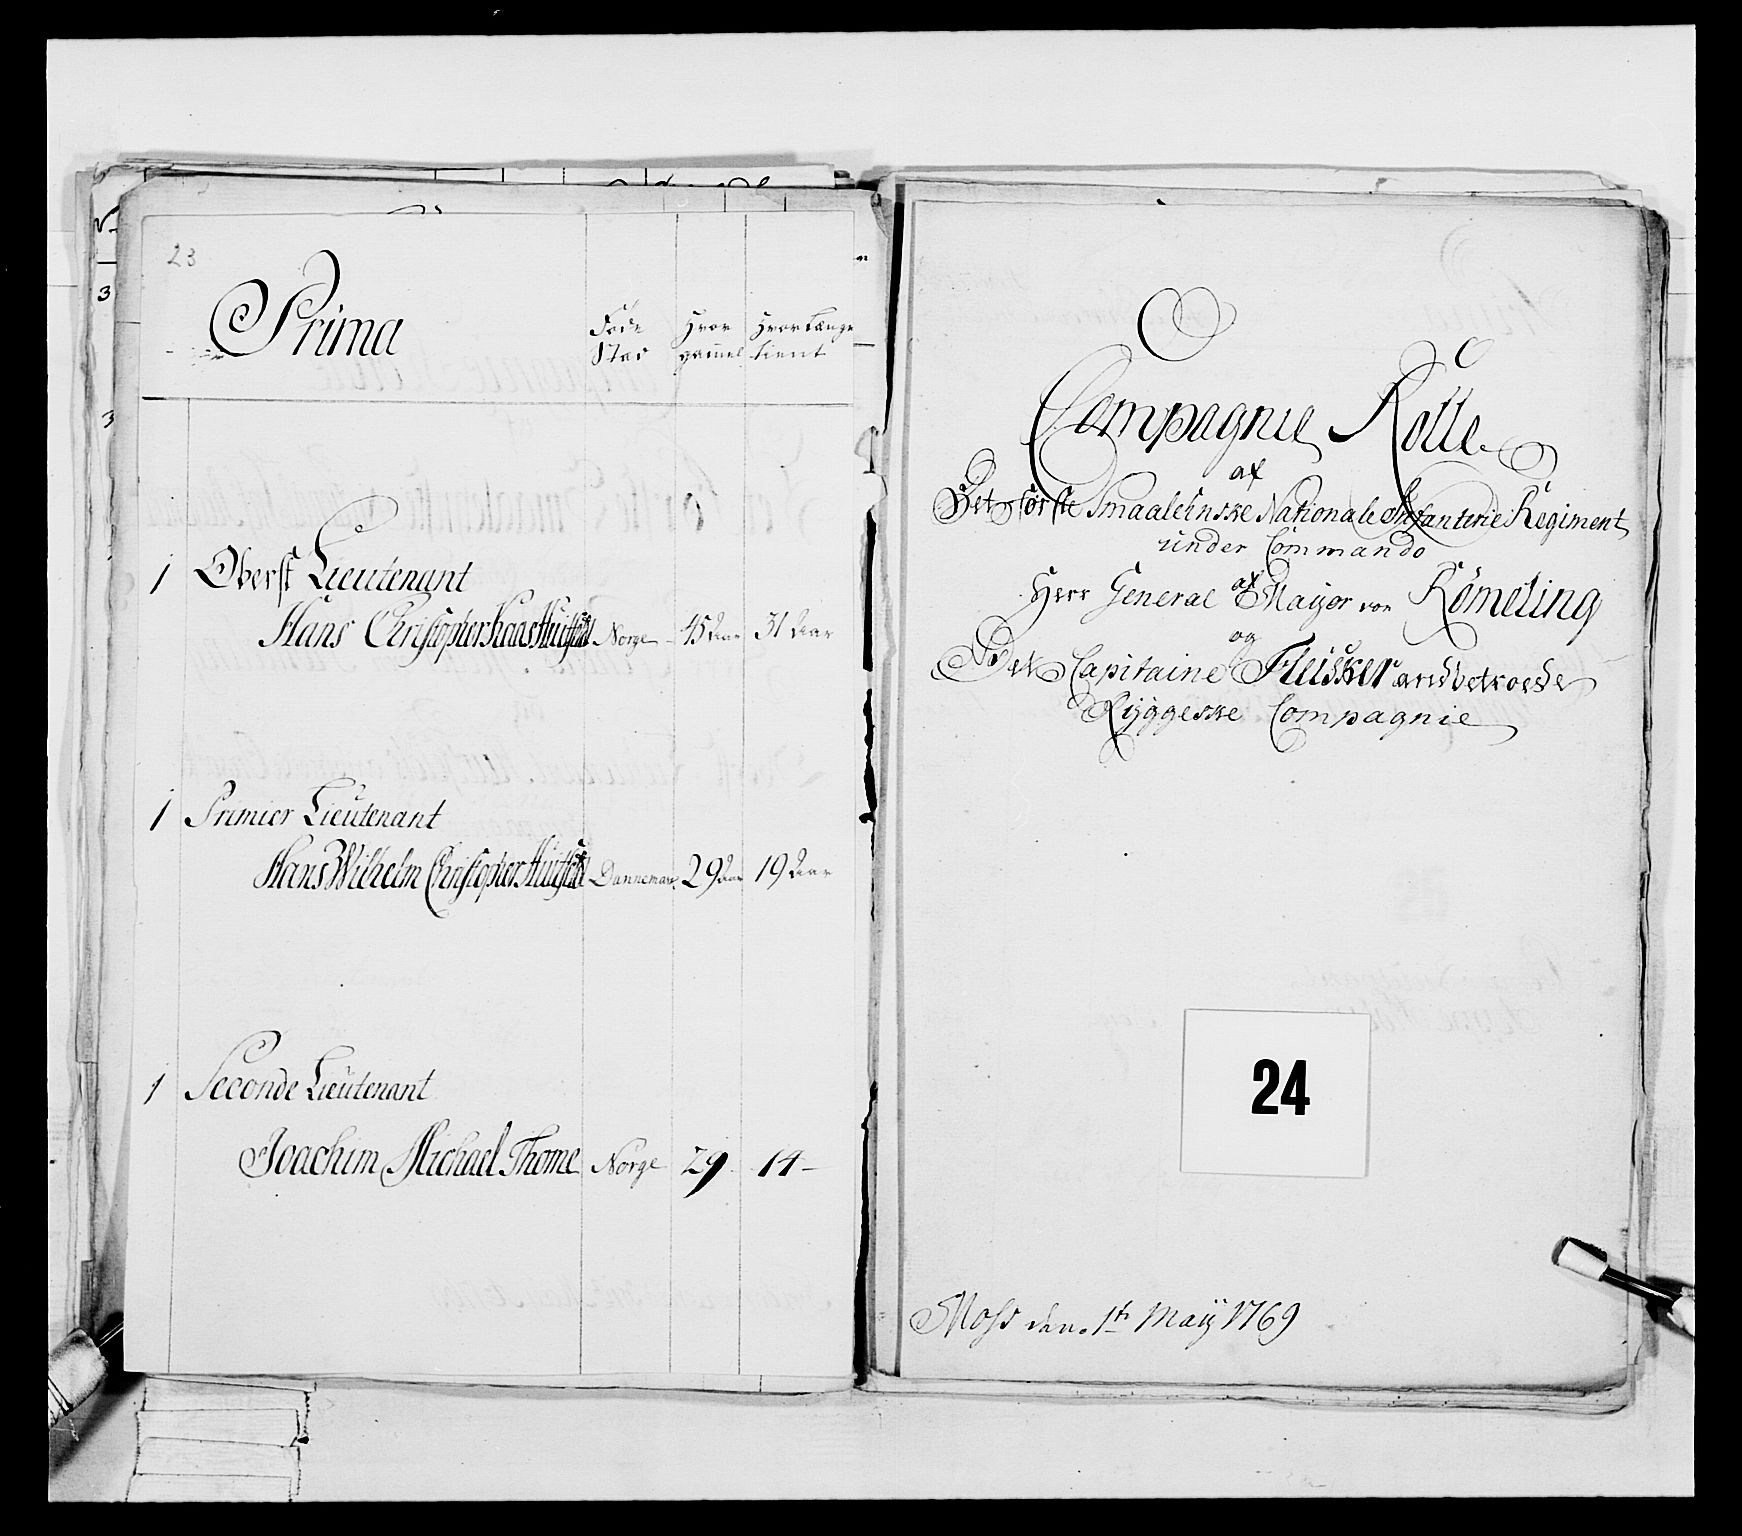 23
Prima
Føde Stæd
Hvor gammel
Hvor Længe tient
1 Oberst Lieutenant
Hans Christopher Kaas Huitfeld Norge 45 Aar 31 Aar
1 Premier Lieutenant
Hans Wilhelm Christopher Huitfeld Dannemar. 29 Aar 19 Aar
1 Seconde Lieutenant
Joachim Michael Thome Norge 29 14
Compagnie Rolle
af
Det første Smaalehnske Nationale Infanterie Regiment
under Commando
af
Herr General Mayor von Römeling
og
Det Capitaine Fleischer andbetroede
Ryggeske Compagnie
24
Moss den 1te Maÿ 1769